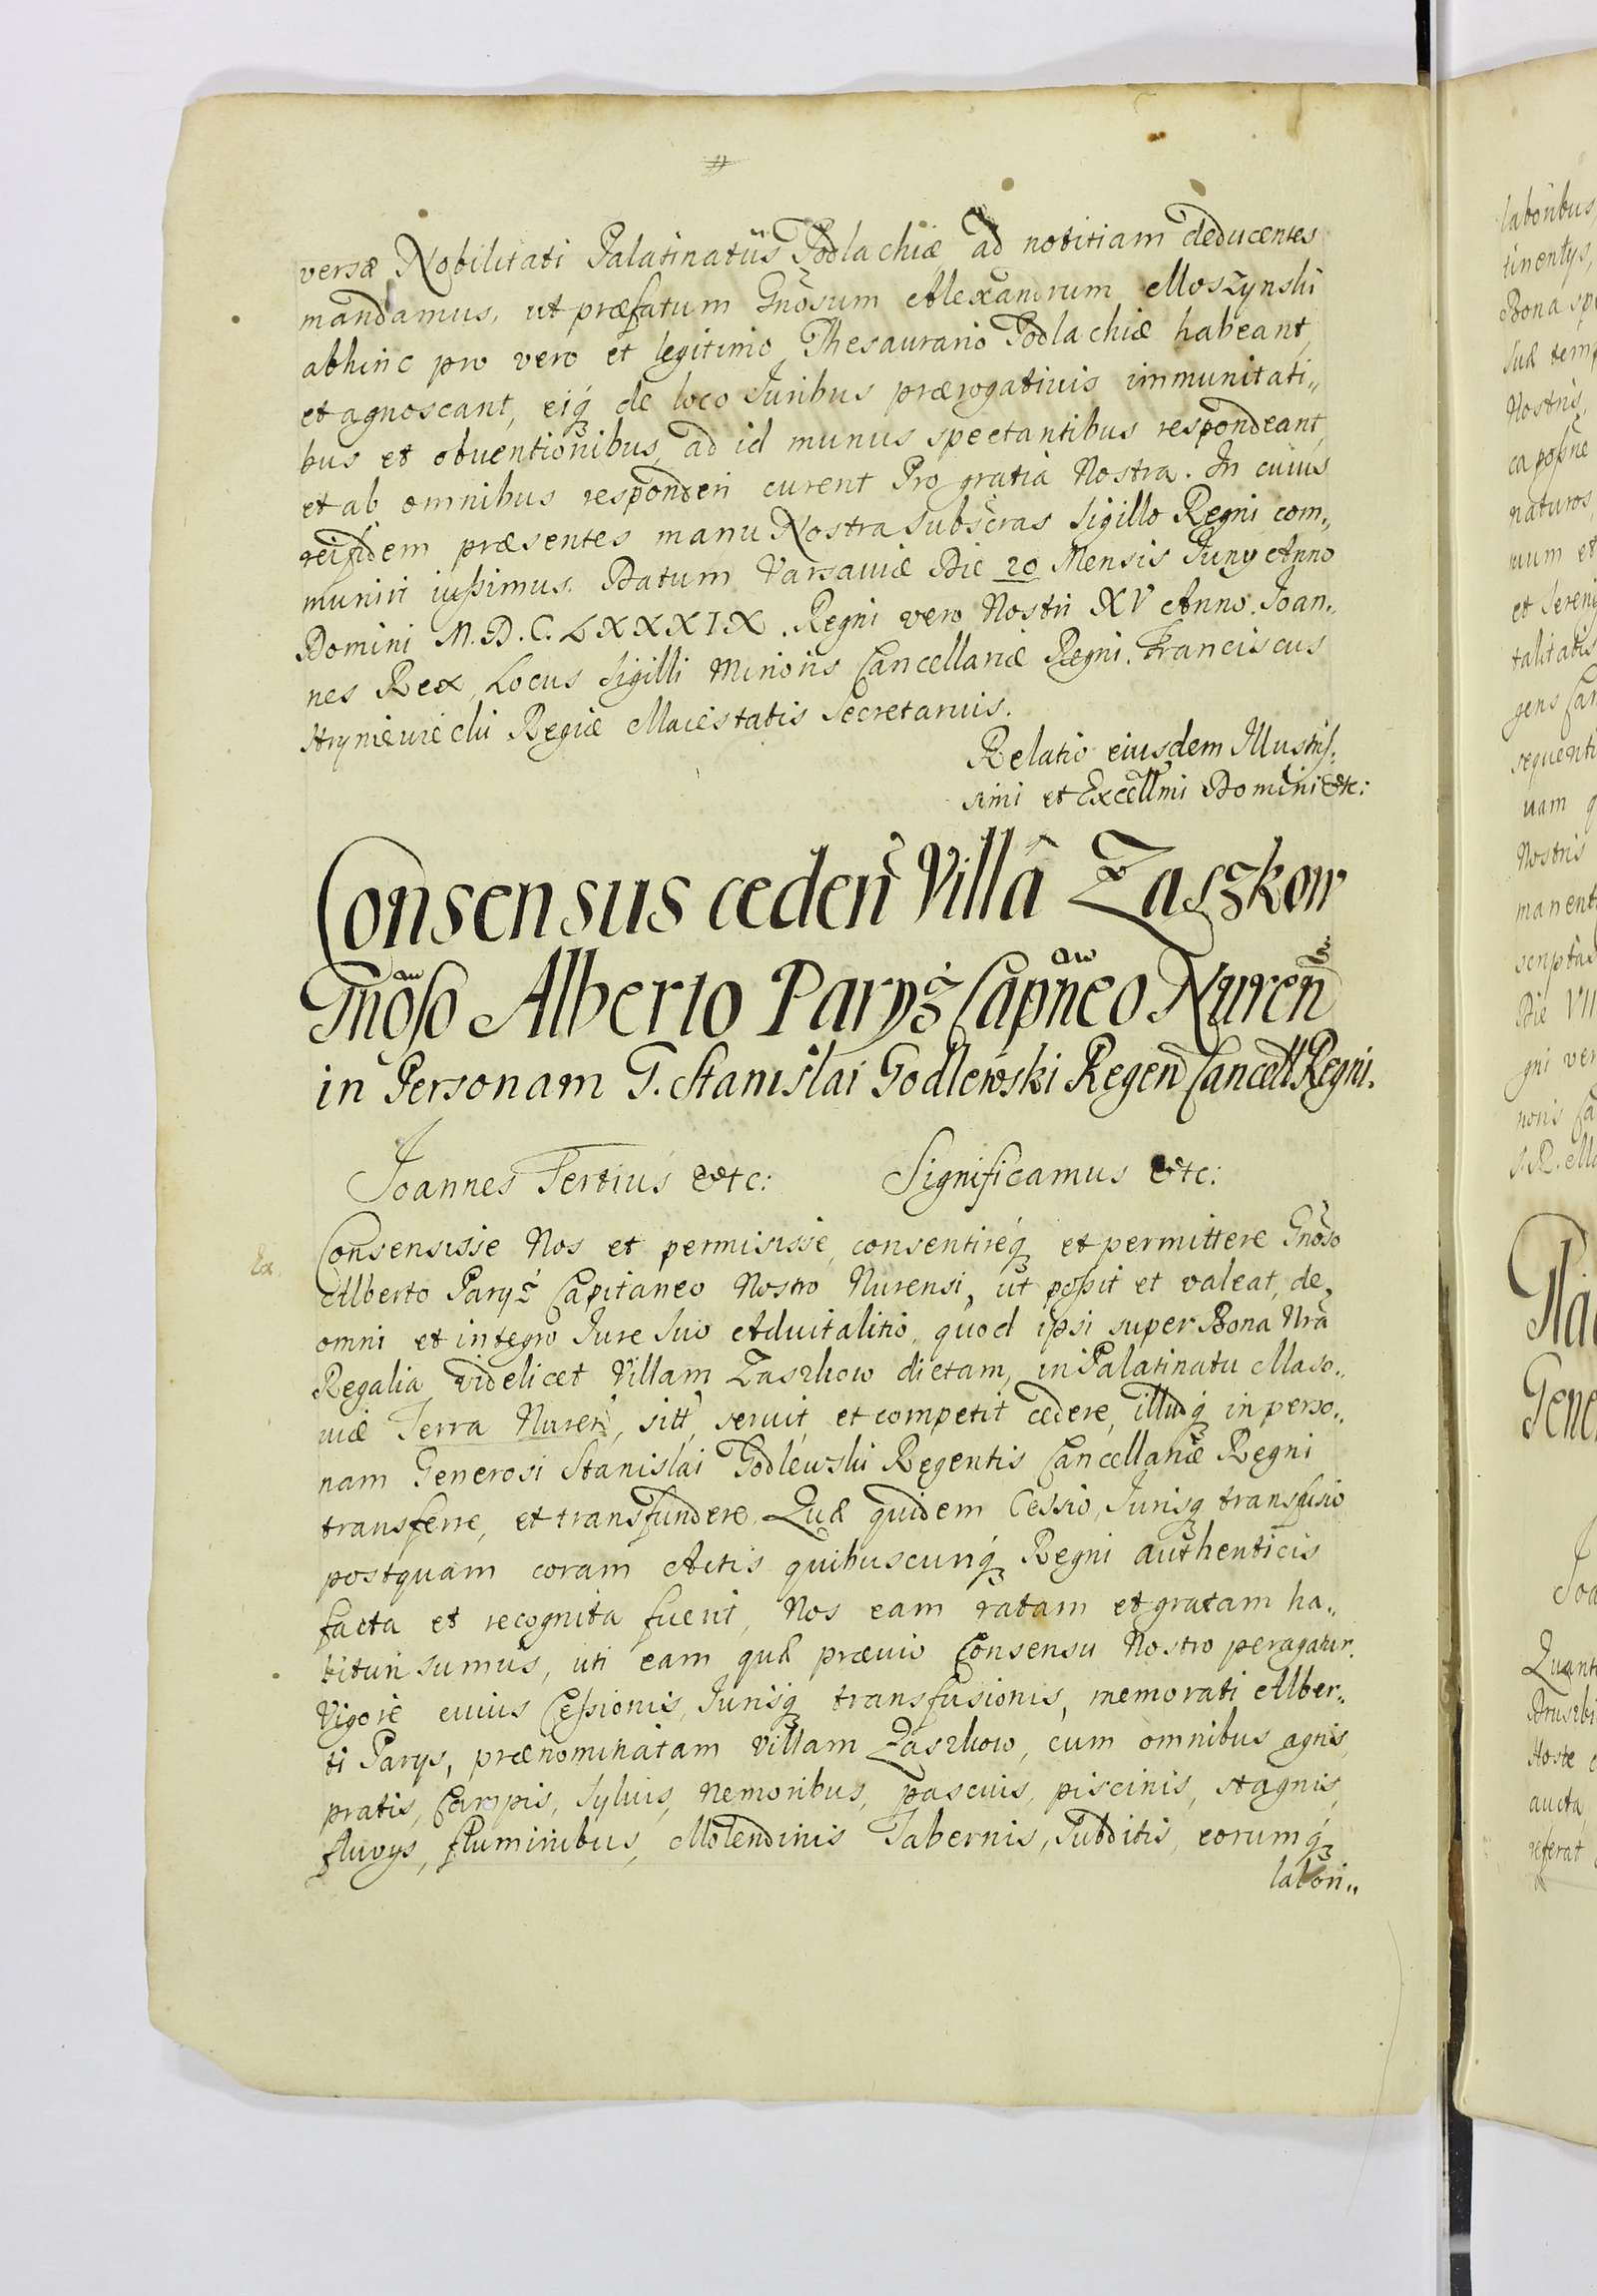 versæ Nobilitati Palatinatûs Podlachiæ ad notitiam deducentes
mandamus, ut præfatum Gnōsum Alexandrum Moszynski
abhinc pro vero et legitimo Thesaurario Podlachiæ habeant,
et agnoscant, eiq́ꝫ de loco Iuribus prærogativis immunitati„
bus et obuentionibus, ad id munus spectantibus respondeant,
et ab omnibus responderi curent Pro gratia Nostra. In cuius
rei fidem præsentes manu Nostra subscras Sigillo Regni com„
muniri iussimus. Datum Varsaviæ Die 20 Mensis Juny Anno
Domini M.D.C.LXXXIX. Regni vero Nostri XV Anno. Joan„
nes Rex, Locus Sigilli Minoris Cancellariæ Regni. Franciscus
Hryniewiecki Regiæ Maiestatis Secretarius.
Relatio eiusdem Illustris„
simi et Excellmi Domini etc:
Consensus ceden̄ Villâ Zaszkow
Gnōso Alberto Paryż Capn̄eo Nuren̄
in Personam G. Stanislai Godlewski Regen̄ Cancell Regni.
Joannes Tertius etc: Significamus etc:
Ex.
Consensisse Nos et permisisse, consentireq́ꝫ et permittere Gnōso
Alberto Paryż Capitaneo Nostro Nurensi, ut possit et valeat, de
omni et integro Iure Suo Aduitalitio, quod ipsi super Bona Nrā
Regalia videlicet Villam Zaszkow dictam, in Palatinatu Maso„
uiæ Terra Nuren̄, sitt, seruit, et competit cedere, illudq́ꝫ in perso„
nam Generosi Stanislai Godlewski Regentis Cancellariæ Regni
transferre, et transfundere. Quæ quidem Cessio, Jurisq́ꝫ transfusio
postquam coram Actis quibuscunq́ꝫ Regni authenticis
facta et recognita fuerit, Nos eam ratam et gratam ha„
bituri sumus, uti eam quæ prævio Consensu Nostro peragatur.
Vigore cuius Cessionis, Jurisq́ꝫ transfusionis, memorati Alber„
ti Parys, prænominatam Villam Zaszkow, cum omnibus agris,
pratis, Campis, Sylvis, Nemoribus, pascuis, piscinis, stagnis,
fluvys, fluminibus, Molendinis Tabernis, Subditis, eorumq́ꝫ
labori„